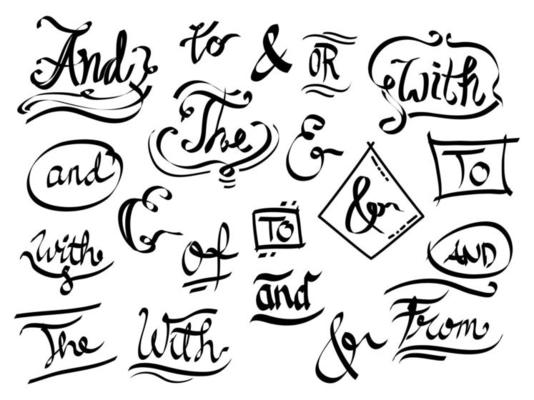 And
to
&
OR
With
The
&
and
To
&
&
With
Of
TO
AND
and
The
With
&
From